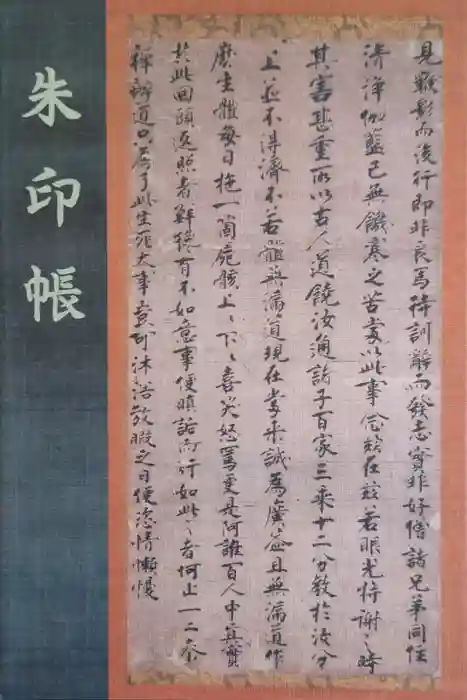 朱印帳
見鞭影而後行即非良馬待訓辭而發志實非好僧諸兄弟同住
清淨伽藍已無饑寒之苦當以此事念茲在茲若眼光將謝之時
其害甚重所以古人道饒汝通諸子百家三乘十二分教於汝分
上並不得濟不若體無漏道現在當來誠為廣益且無漏道作
麼生體每日拖一箇屍骸上〻下〻喜笑怒罵更是阿誰百人中真實
於此回頭返照者鮮纔有不如意事便瞋詬而行如此〻者何止一二參
禪辦道只為了此生死大事豈可沐浴放暇之日便恣情懶慢